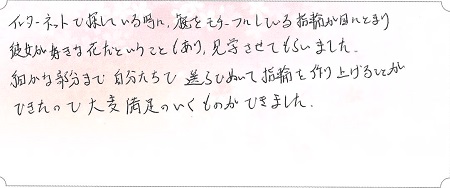 インターネットで探している時に、桜をモチーフにしている指輪が目にとまり
彼女が好きな花だということもあり、見学させてもらいました。
細かな部分まで自分たちで選らびぬいて指輪を作り上げることが
できたので大変満足のいくものができました。